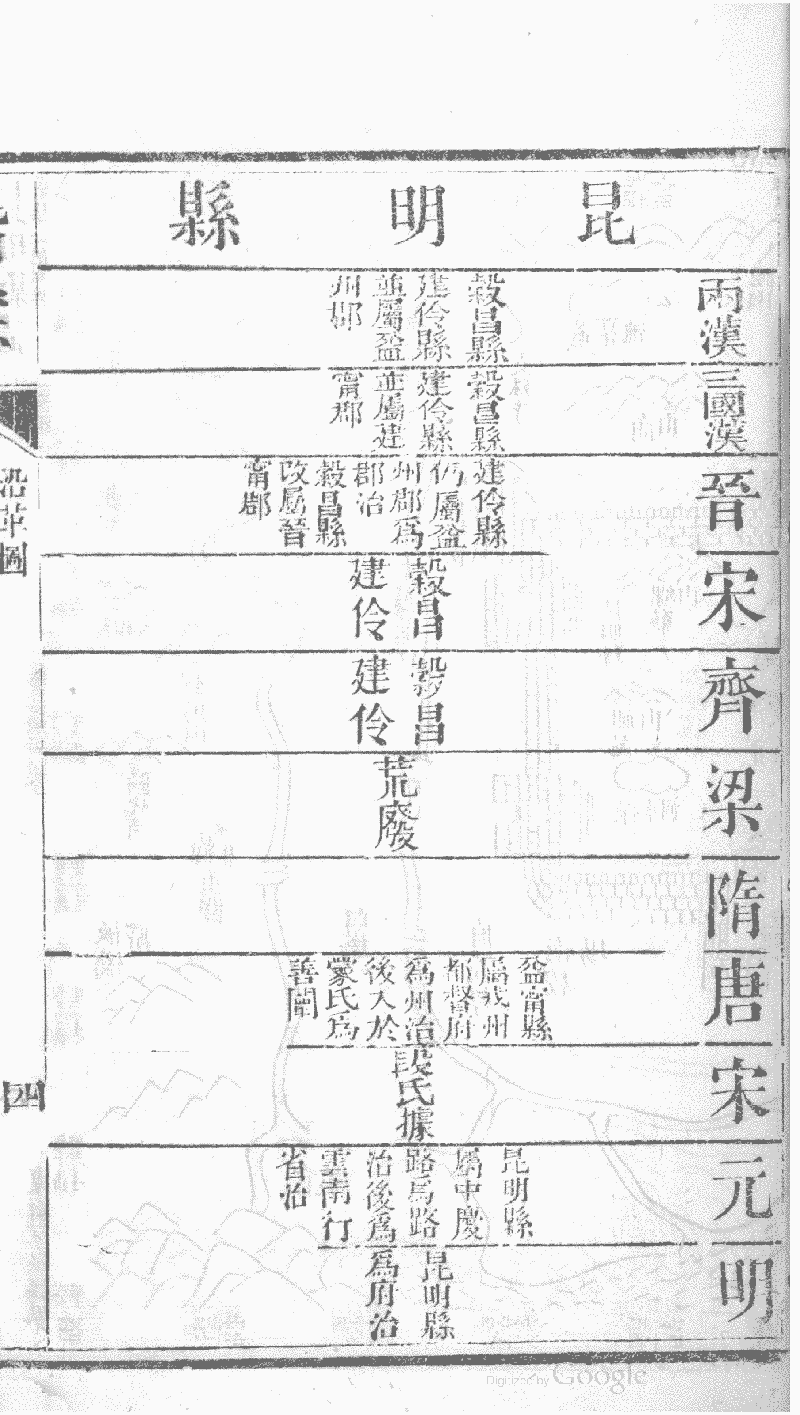 昆明縣
兩漢
穀昌縣
建伶縣
並屬益
州郡
三國漢
穀昌縣
建伶縣
並屬建
甯郡
晉
建伶縣
仍屬益
州郡為
郡治
穀昌縣
改屬晉
甯郡
宋
穀昌
建伶
齊
穀昌
建伶
梁
荒廢
隋
唐
益甯縣
屬戎州
都督府
為州治
後入於
蒙氏為
善闡
宋
段氏據
元
昆明縣
屬中慶
路為路
治後為
雲南行
省治
明
昆明縣
為府治
沿革圖
四
Digitized by Google